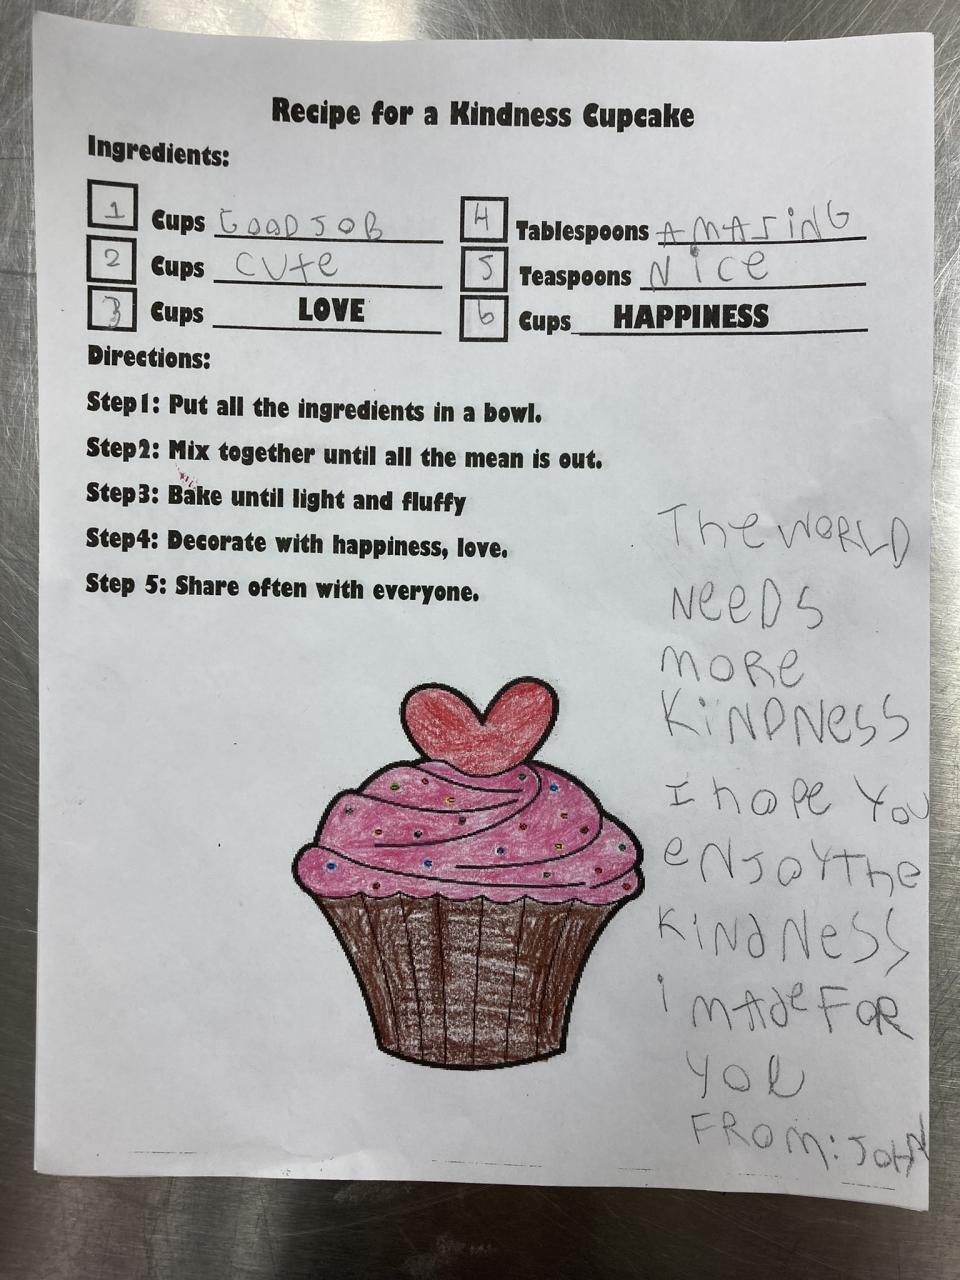 Recipe for a Kindness Cupcake
Ingredients:
1 Cups GOOD JOB
2 Cups CUte
3 Cups LOVE
4 Tablespoons AMASiNG
5 Teaspoons NiCe
6 Cups HAPPINESS
Directions:
Step1: Put all the ingredients in a bowl.
Step2: Mix together until all the mean is out.
Step3: Bake until light and fluffy
Step4: Decorate with happiness, love.
Step 5: Share often with everyone.
The WORLD
NeeDS
MORe
KiNDNeSS
I hope You
eNJOYThe
KiNdNeSS
i MAde FOR
YOU
FROM: JOHN